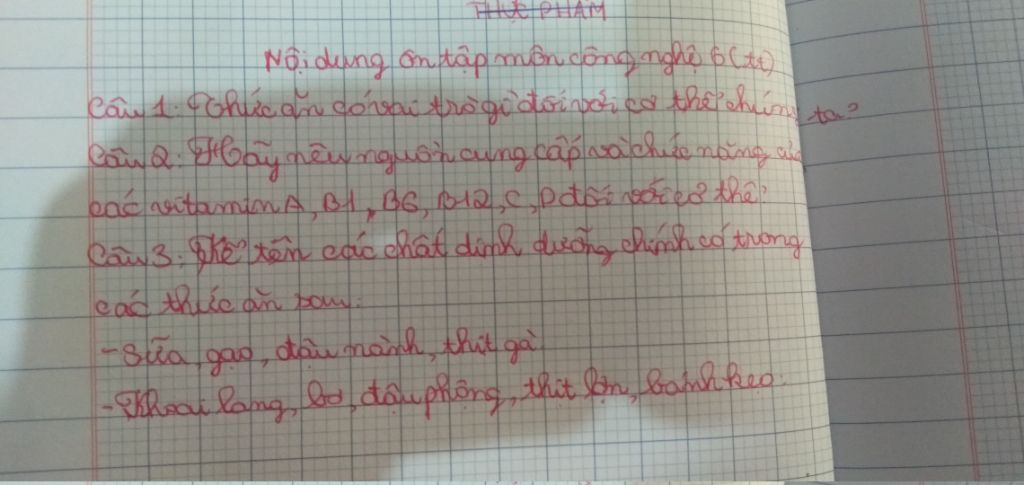 THỰC PHẨM
Nội dung ôn tập môn công nghệ 6 (tt)
Câu 1: Thức ăn có vai trò gì đối với cơ thể chúng ta?
Câu 2: Hãy nêu nguồn cung cấp và chức năng của
các vitamin A, B1, B6, B12, C, D đối với cơ thể
Câu 3: Kể tên các chất dinh dưỡng chính có trong
các thức ăn sau:
- Sữa, gạo, đậu nành, thịt gà
- Khoai lang, bơ, đậu phông, thịt lợn, bánh kẹo.